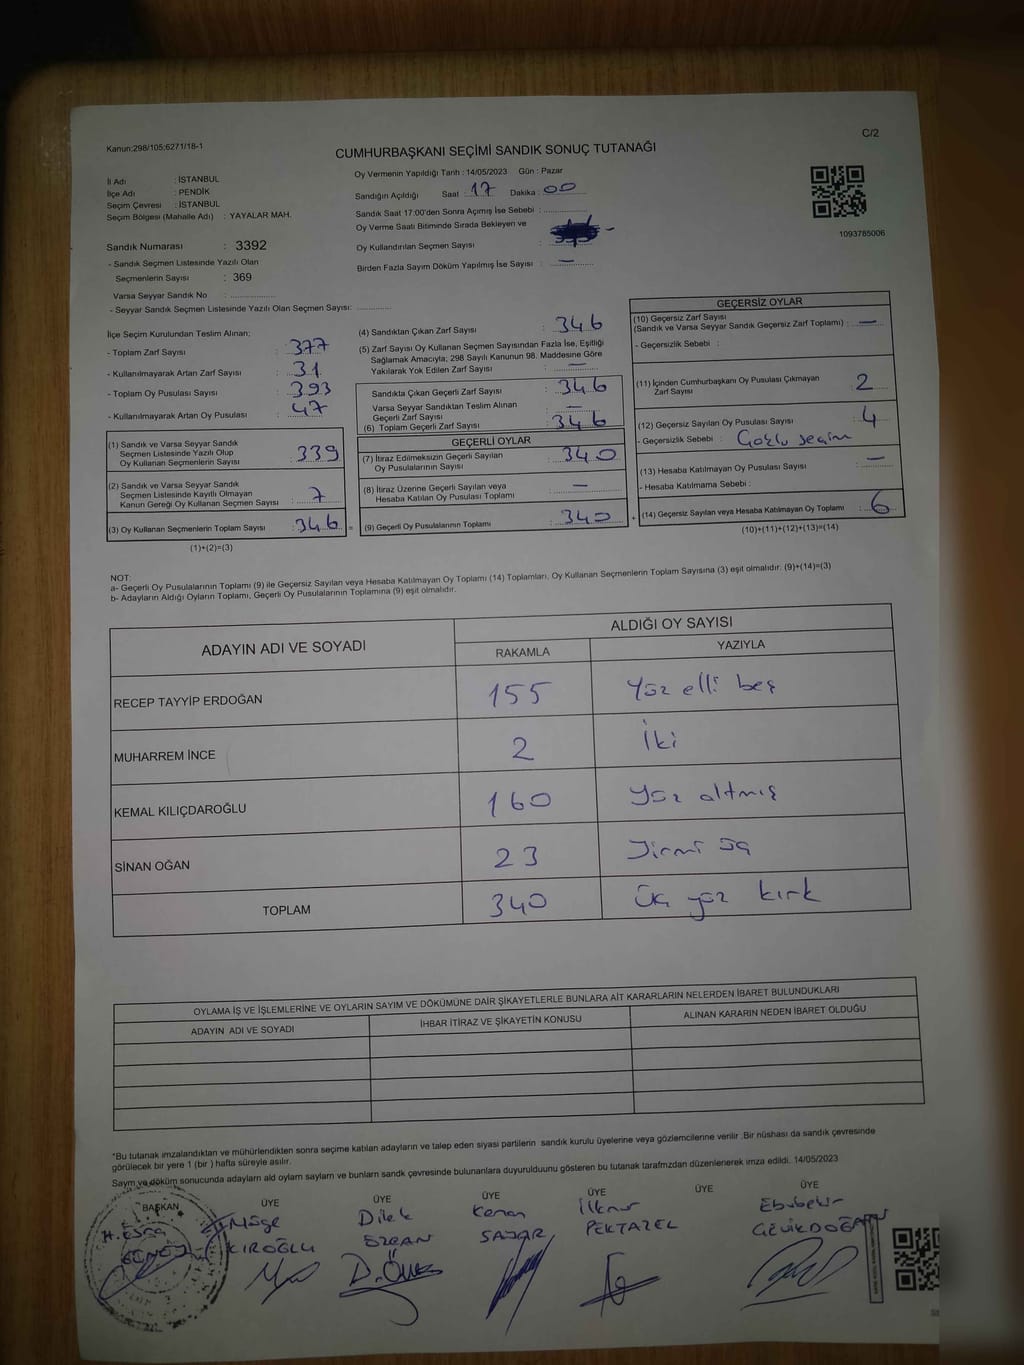 Kanun:298/105;6271/18-1
C/2
CUMHURBAŞKANI SEÇİMİ SANDIK SONUÇ TUTANAĞI
İl Adı : İSTANBUL
İlçe Adı : PENDİK
Seçim Çevresi : İSTANBUL
Seçim Bölgesi (Mahalle Adı) : YAYALAR MAH.
Oy Vermenin Yapıldığı Tarih : 14/05/2023 Gün : Pazar
Sandığın Açıldığı Saat : 17 Dakika : 00
Sandık Saat 17:00'den Sonra Açımış İse Sebebi :
Oy Verme Saati Bitiminde Sırada Bekleyen ve
Oy Kullandırılan Seçmen Sayısı :
Birden Fazla Sayım Döküm Yapılmış İse Sayısı : —
1093785006
Sandık Numarası : 3392
- Sandık Seçmen Listesinde Yazılı Olan
Seçmenlerin Sayısı : 369
Varsa Seyyar Sandık No :
- Seyyar Sandık Seçmen Listesinde Yazılı Olan Seçmen Sayısı:
İlçe Seçim Kurulundan Teslim Alınan;
- Toplam Zarf Sayısı : 377
- Kullanılmayarak Artan Zarf Sayısı : 31
- Toplam Oy Pusulası Sayısı : 393
- Kullanılmayarak Artan Oy Pusulası : 47
(1) Sandık ve Varsa Seyyar Sandık
Seçmen Listesinde Yazılı Olup
Oy Kullanan Seçmenlerin Sayısı : 339
(2) Sandık ve Varsa Seyyar Sandık
Seçmen Listesinde Kayıtlı Olmayan
Kanun Gereği Oy Kullanan Seçmen Sayısı : 7
(3) Oy Kullanan Seçmenlerin Toplam Sayısı : 346 =
(1)+(2)=(3)
(4) Sandıktan Çıkan Zarf Sayısı : 346
(5) Zarf Sayısı Oy Kullanan Seçmen Sayısından Fazla İse, Eşitliği
Sağlamak Amacıyla; 298 Sayılı Kanunun 98. Maddesine Göre
Yakılarak Yok Edilen Zarf Sayısı : —
Sandıkta Çıkan Geçerli Zarf Sayısı : 346
Varsa Seyyar Sandıktan Teslim Alınan
Geçerli Zarf Sayısı : —
(6) Toplam Geçerli Zarf Sayısı : 346
GEÇERLİ OYLAR
(7) İtiraz Edilmeksizin Geçerli Sayılan
Oy Pusulalarının Sayısı : 340
(8) İtiraz Üzerine Geçerli Sayılan veya
Hesaba Katılan Oy Pusulası Toplamı : —
(9) Geçerli Oy Pusulalarının Toplamı : 340 +
GEÇERSİZ OYLAR
(10) Geçersiz Zarf Sayısı
(Sandık ve Varsa Seyyar Sandık Geçersiz Zarf Toplamı) : —
- Geçersizlik Sebebi :
(11) İçinden Cumhurbaşkanı Oy Pusulası Çıkmayan
Zarf Sayısı : 2
(12) Geçersiz Sayılan Oy Pusulası Sayısı : 4
- Geçersizlik Sebebi : Çoklu seçim
(13) Hesaba Katılmayan Oy Pusulası Sayısı : —
- Hesaba Katılmama Sebebi :
(14) Geçersiz Sayılan veya Hesaba Katılmayan Oy Toplamı : 6
(10)+(11)+(12)+(13)=(14)
NOT:
a- Geçerli Oy Pusulalarının Toplamı (9) ile Geçersiz Sayılan veya Hesaba Katılmayan Oy Toplamı (14) Toplamları, Oy Kullanan Seçmenlerin Toplam Sayısına (3) eşit olmalıdır. (9)+(14)=(3)
b- Adayların Aldığı Oyların Toplamı, Geçerli Oy Pusulalarının Toplamına (9) eşit olmalıdır.
ADAYIN ADI VE SOYADI
ALDIĞI OY SAYISI
RAKAMLA YAZIYLA
RECEP TAYYİP ERDOĞAN 155 Yüz elli beş
MUHARREM İNCE 2 İki
KEMAL KILIÇDAROĞLU 160 Yüz altmış
SİNAN OĞAN 23 Yirmi üç
TOPLAM 340 Üç yüz kırk
OYLAMA İŞ VE İŞLEMLERİNE VE OYLARIN SAYIM VE DÖKÜMÜNE DAİR ŞİKAYETLERLE BUNLARA AİT KARARLARIN NELERDEN İBARET BULUNDUKLARI
ADAYIN ADI VE SOYADI İHBAR İTİRAZ VE ŞİKAYETİN KONUSU ALINAN KARARIN NEDEN İBARET OLDUĞU
*Bu tutanak imzalandıktan ve mühürlendikten sonra seçime katılan adayların ve talep eden siyasi partilerin sandık kurulu üyelerine veya gözlemcilerine verilir .Bir nüshası da sandık çevresinde
görülecek bir yere 1 (bir ) hafta süreyle asılır.
Saym ve döküm sonucunda adaylarn ald oylarn saylarn ve bunlarn sandk çevresinde bulunanlara duyurulduunu gösteren bu tutanak tarafmzdan düzenlenerek imza edildi. 14/05/2023
BAŞKAN ÜYE ÜYE ÜYE ÜYE ÜYE ÜYE
H. Esra Müge Dilek Kenan İlknur Ebubekir
KIROĞLU ÖZCAN PEKTAZEL GEVİKDOĞAN
D.